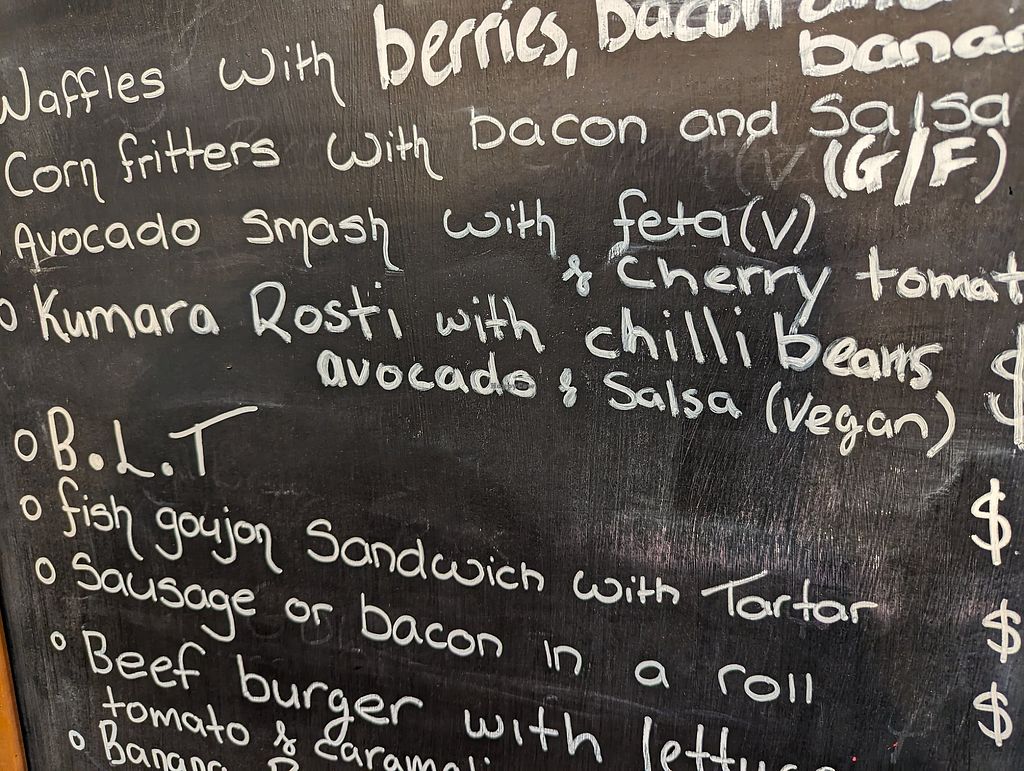 Waffles with berries, bacon and
banan
Corn fritters with bacon and salsa
(V (G/F)
Avocado smash with feta(v)
& cherry tomat
o Kumara Rosti with chilli beans $
avocado & Salsa (vegan)
o B.L.T
o fish goujon Sandwich with Tartar $
o Sausage or bacon in a roll $
o Beef burger with lettuce $
tomato & carameli
o Banana